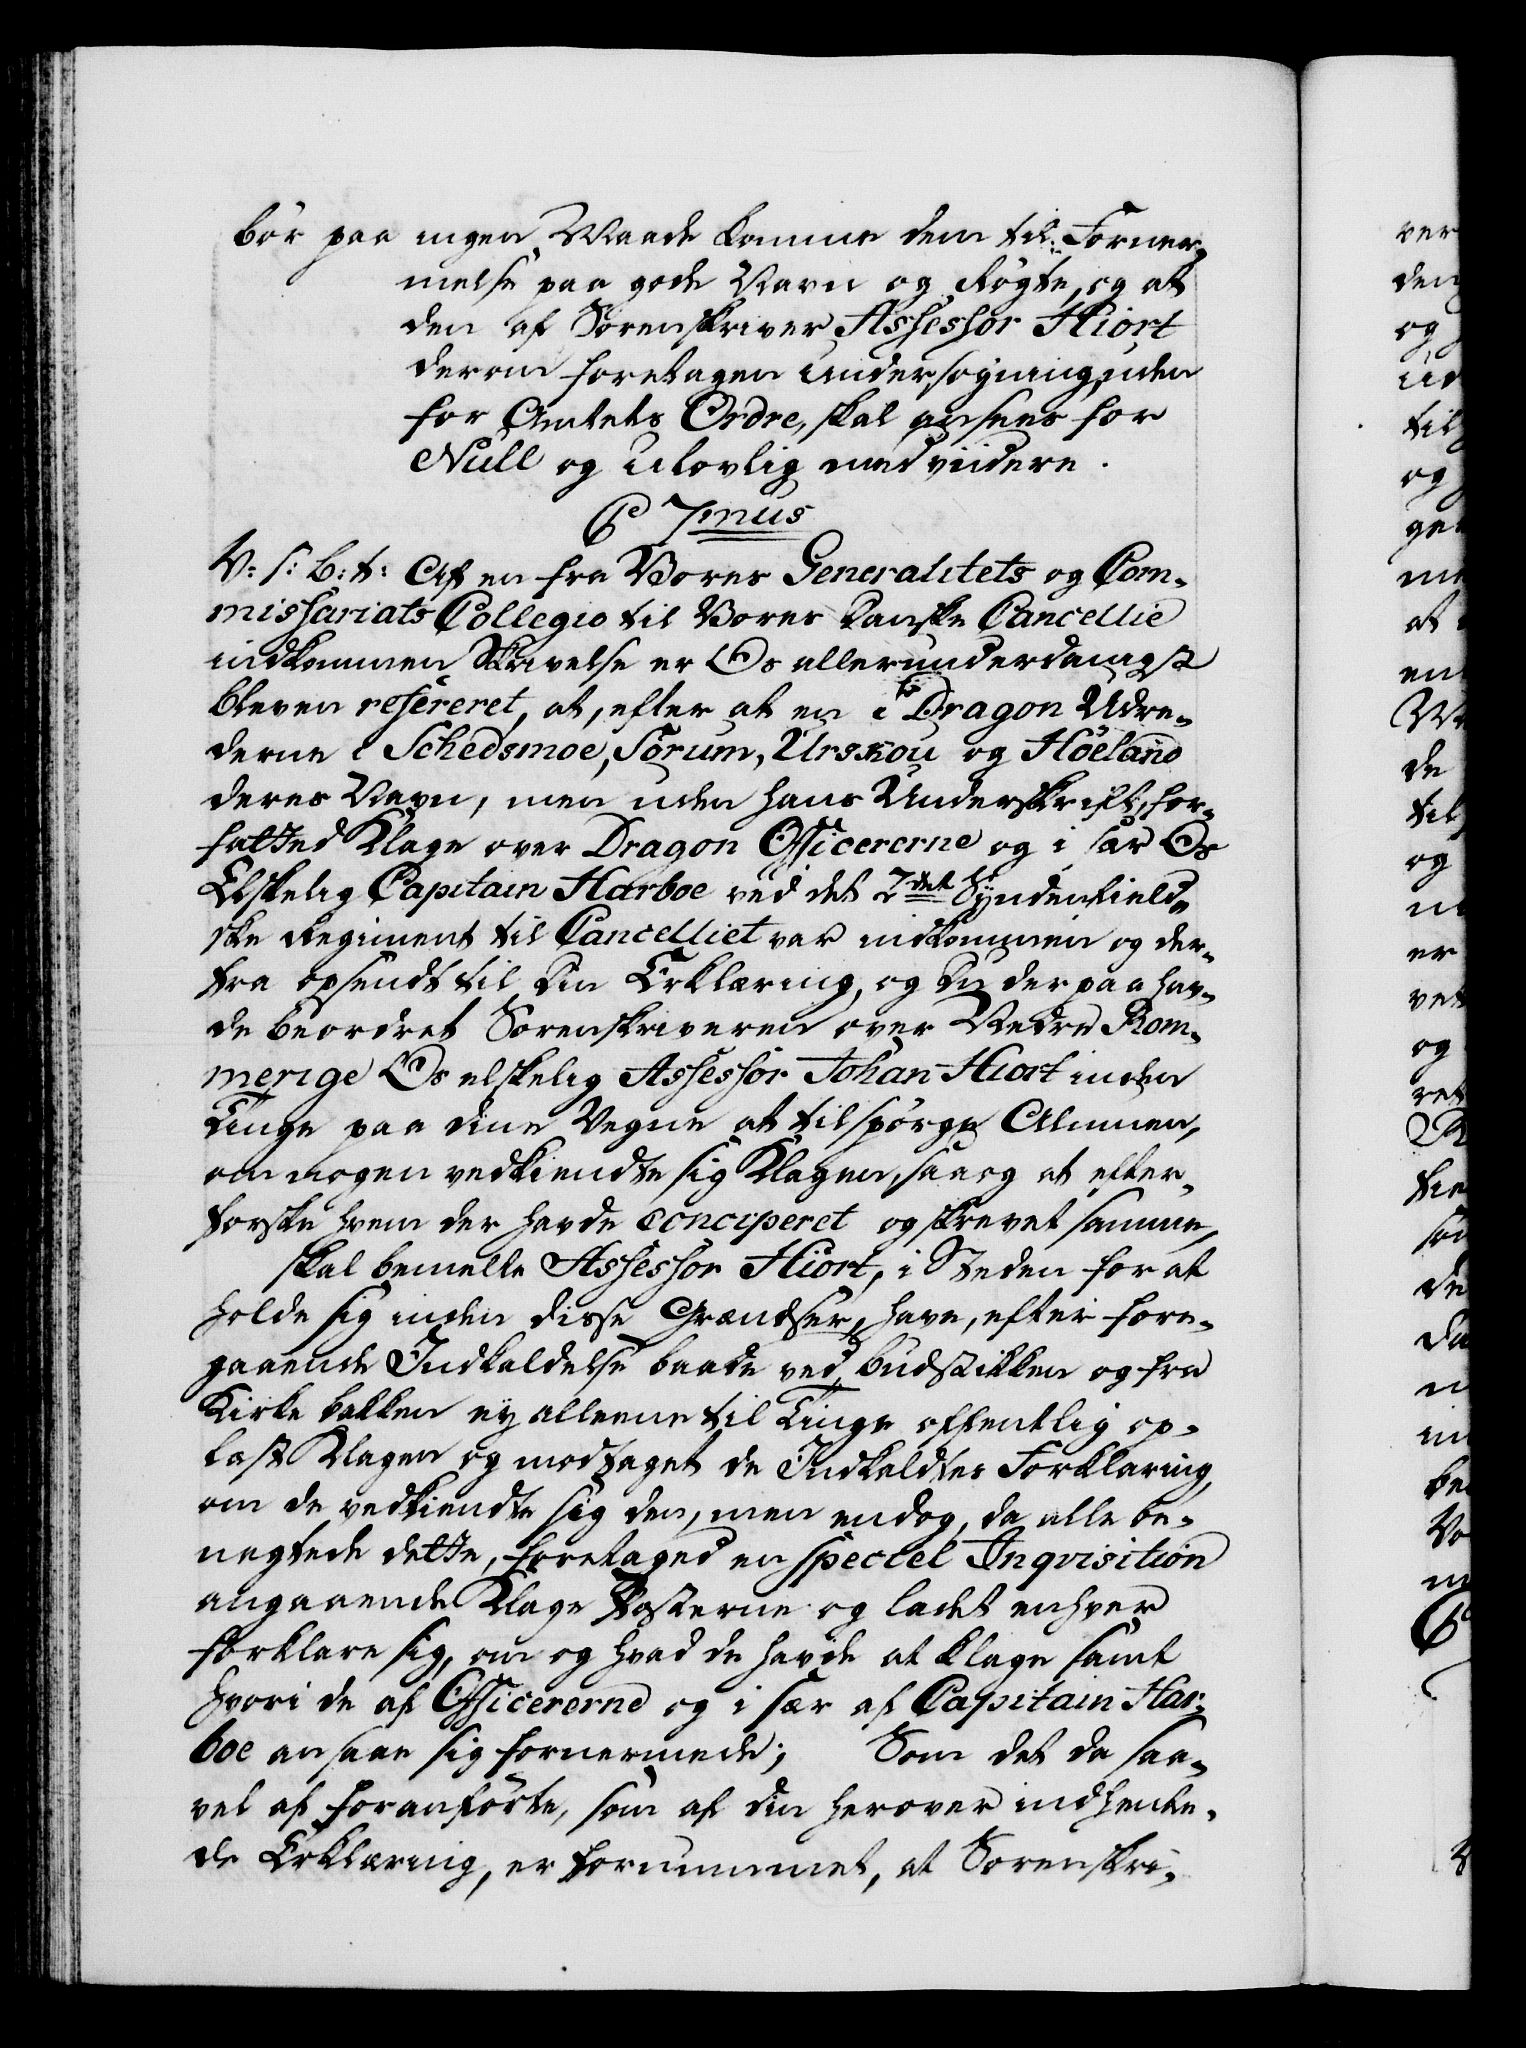 bör paa ingen Maade komme dem til Forner-
melse paa gode Navn og Rögte, og at
den af Sorenskriver Assessor Hiort
derom foretagen Undersögning, uden
for Amtets Ordre, skal ansees for
Null og Ulovlig med viidere.
C 7mus
V: S: B: t: Af en fra Vores Generalitets og Com-
missariats Collegio til Vores Danske Cancellie
indkommen Skrivelse er Os allerunderdanigst
bleven refereret, at, efter at en i Dragon Udre-
derne i Schedsmoe, Sörum, Urskou og Höeland
deres Navn, men uden hans Underskrift, for-
fatted Klage over Dragon Officererne og i sær Os
Elskelig Capitain Harboe ved det 2det Syndenfield-
ske Regiment til Cancelliet var indkommen og der-
fra opsendt til din Erklæring, og du derpaa hav-
de beordret Sorenskriveren over Nedre Rom-
merige Os elskelig Assessor Johan Hiort inden
Tinge paa dine Vegne at tilspörge Almuen,
om nogen vedkiendte sig Klagen, saa og at efter-
forske hvem der havde conciperet og skrevet samme,
skal bemelte Assessor Hiort, i Steden for at
holde sig inden disse Grændser, have, efter fore-
gaaende Indkaldelse baade ved Budstikken og fra
Kirke bakken ey alleene til Tinge offentlig op-
læst Klagen og modtaget de Indkaldtes Forklaring,
om de vedkiendte sig den, men endog, da alle be-
nægtede dette, foretaged en speciel Inqvisition
angaaende Klage Posterne og ladet enhver
forklare sig, om og hvad de havde at klage samt
hvori de af Officererne og i sær af Capitain Har-
boe ansaae sig fornermede; Som det da saa-
vel af foranförte, som af din herover indhente-
de Erklæring, er fornummet, at Sorenskri-